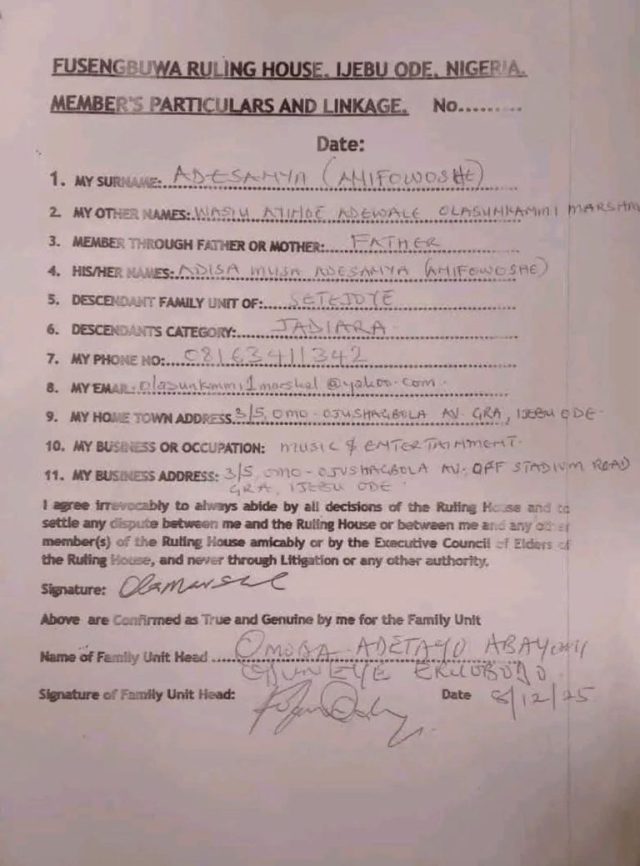 FUSENGBUWA RULING HOUSE, IJEBU ODE, NIGERIA.
MEMBER'S PARTICULARS AND LINKAGE. No.........
Date:
1. MY SURNAME: ADESANYA (AMIFOWOSHE)
2. MY OTHER NAMES: WASIU AYINDE ADEWALE OLASUNKANMI MARSHAL
3. MEMBER THROUGH FATHER OR MOTHER: FATHER
4. HIS/HER NAMES: ADISA MUSA ADESANYA (AMIFOWOSHE)
5. DESCENDANT FAMILY UNIT OF: SETEJOYE
6. DESCENDANTS CATEGORY: JADIARA
7. MY PHONE NO: 08163411342
8. MY EMAIL: olasunkmmi1marshal@yahoo.com
9. MY HOME TOWN ADDRESS 3/5, OMO-OJUSHAGBOLA AV. GRA, IJEBU ODE.
10. MY BUSINESS OR OCCUPATION: MUSIC & ENTERTAINMENT.
11. MY BUSINESS ADDRESS: 3/5, OMO-OJUSHAGBOLA AV. OFF STADIUM ROAD
GRA, IJEBU ODE.
I agree irrevocably to always abide by all decisions of the Ruling House and to
settle any dispute between me and the Ruling House or between me and any other
member(s) of the Ruling House amicably or by the Executive Council of Elders of
the Ruling House, and never through Litigation or any other authority.
Signature: Olamarshal
Above are Confirmed as True and Genuine by me for the Family Unit
Name of Family Unit Head OMOBA ADETAYO ABAYOMI
Signature of Family Unit Head: Date 8/12/25